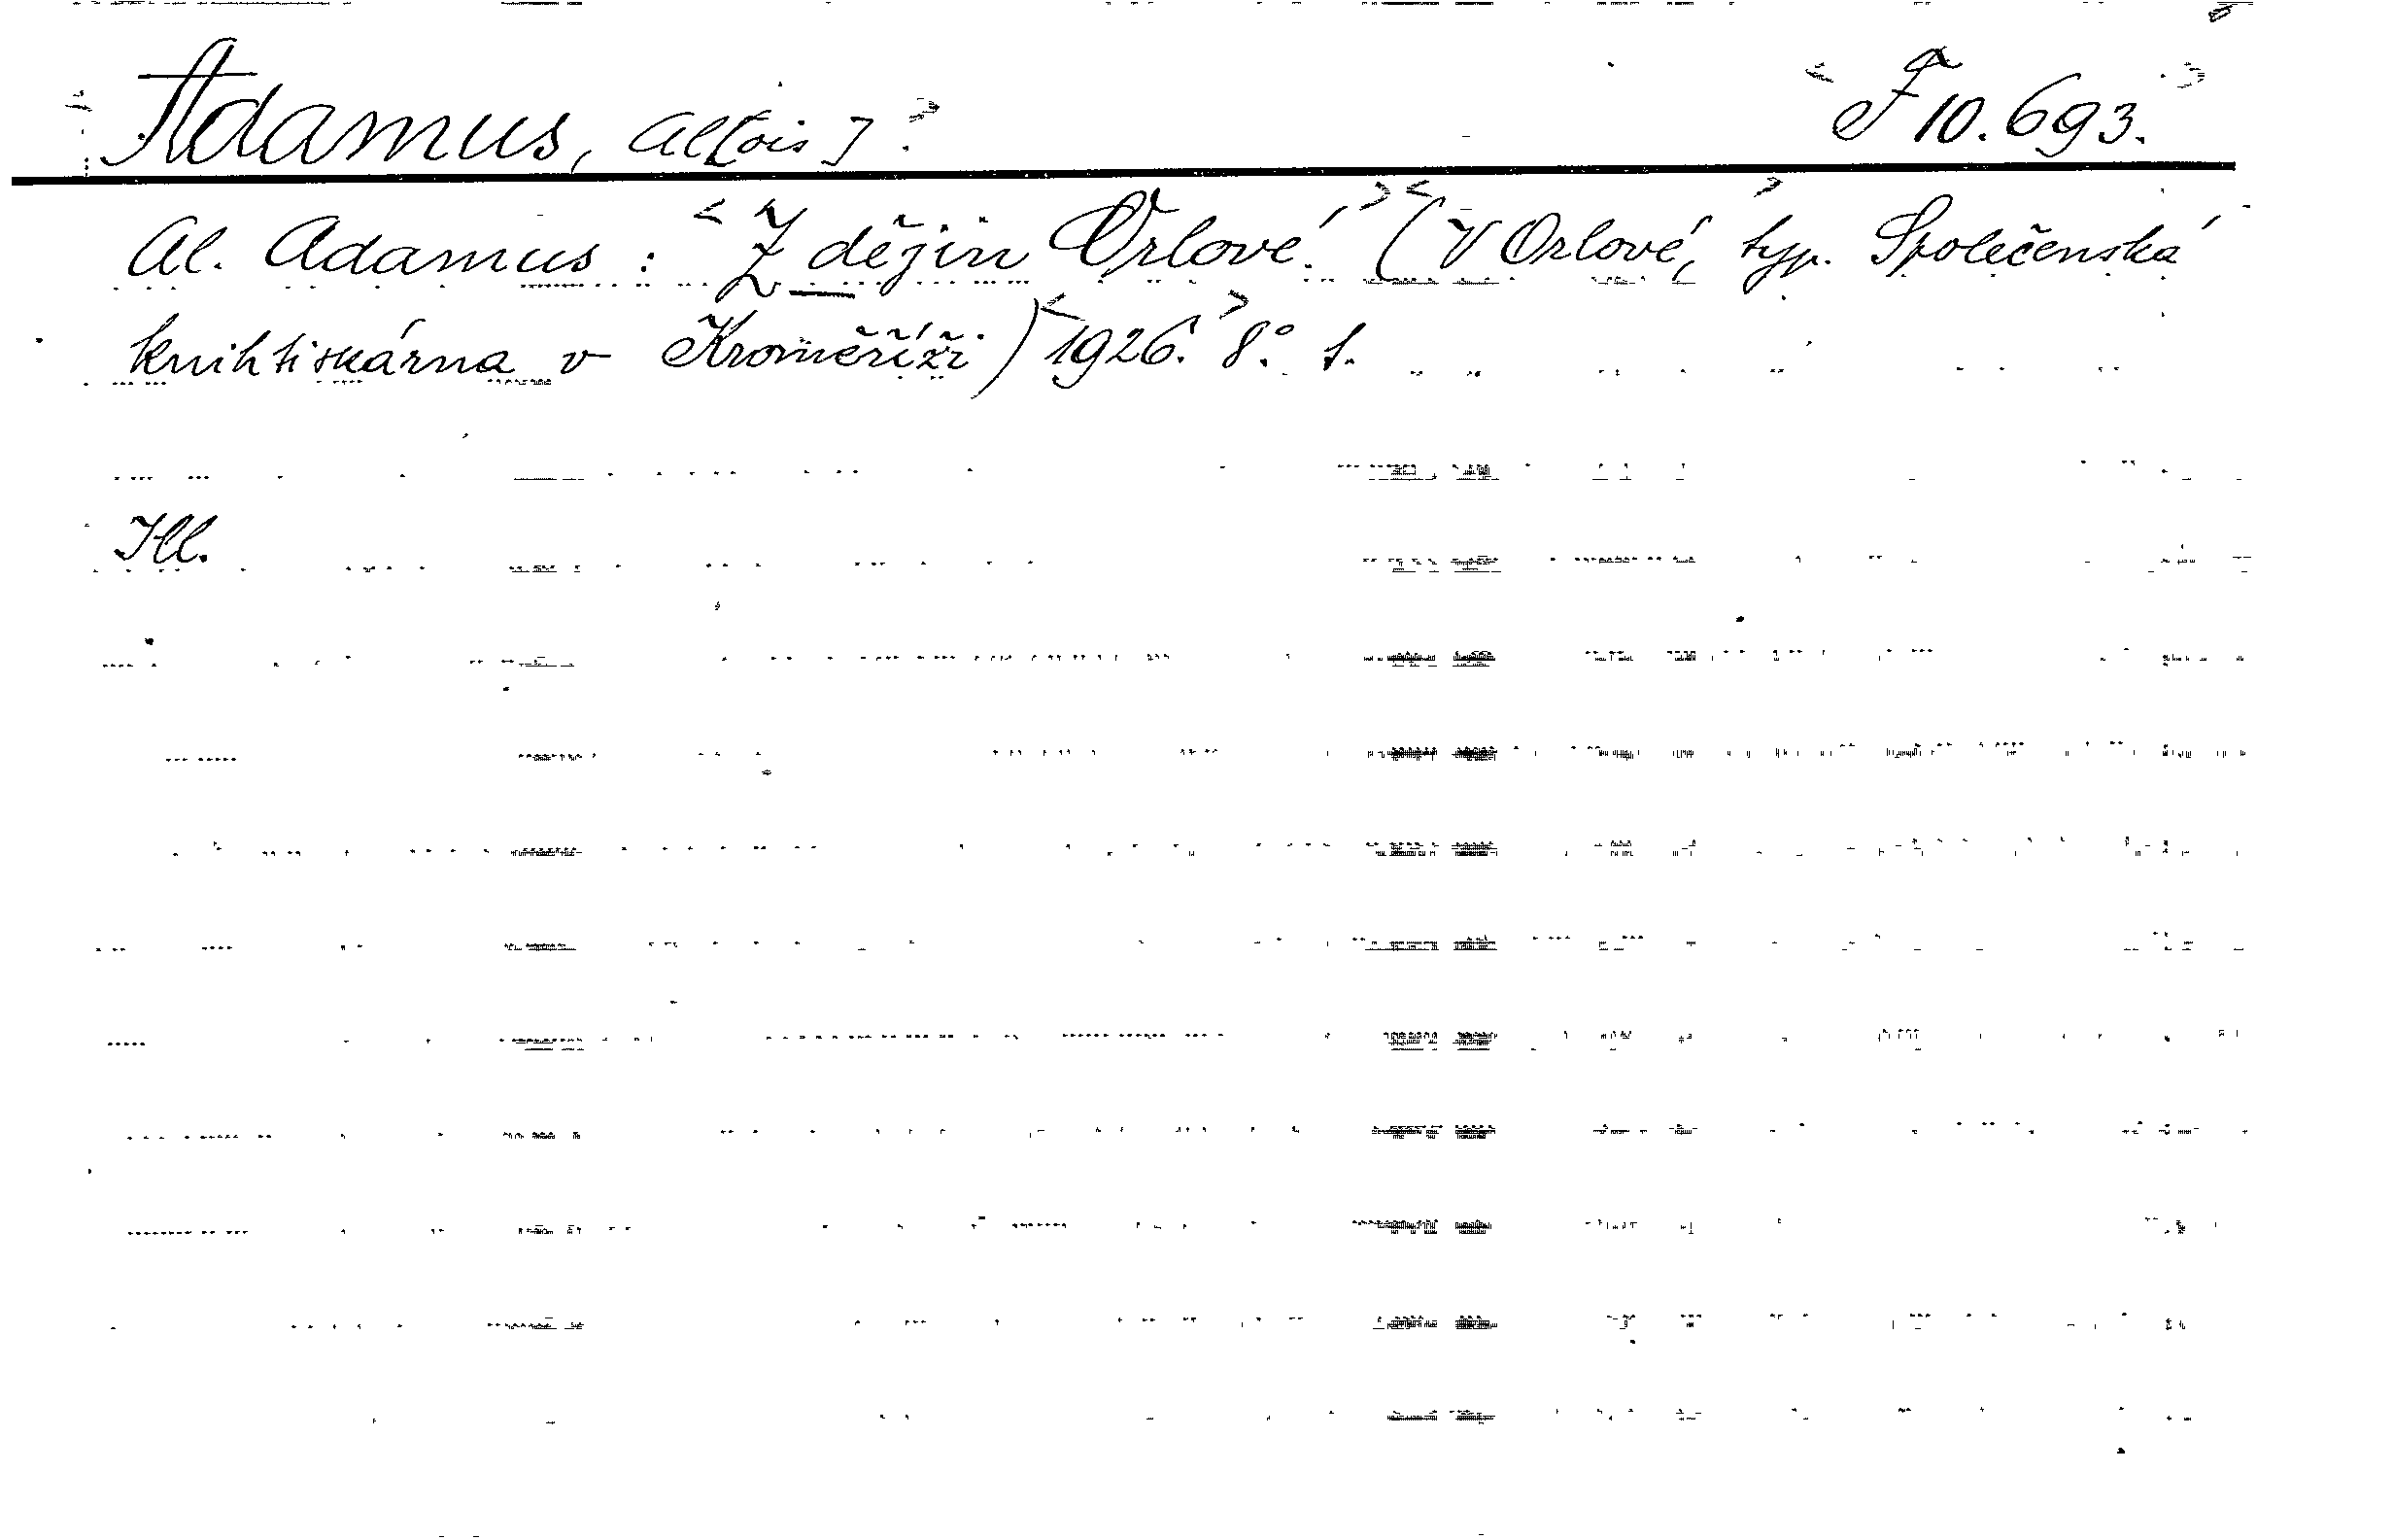 Adamus, Al[ois] F 10.693.
Al. Adamus: Z dějin Orlové. (V Orlové, typ. Společenská
knihtiskárna v Kroměříži) 1926. 8°. 1.
Ill.